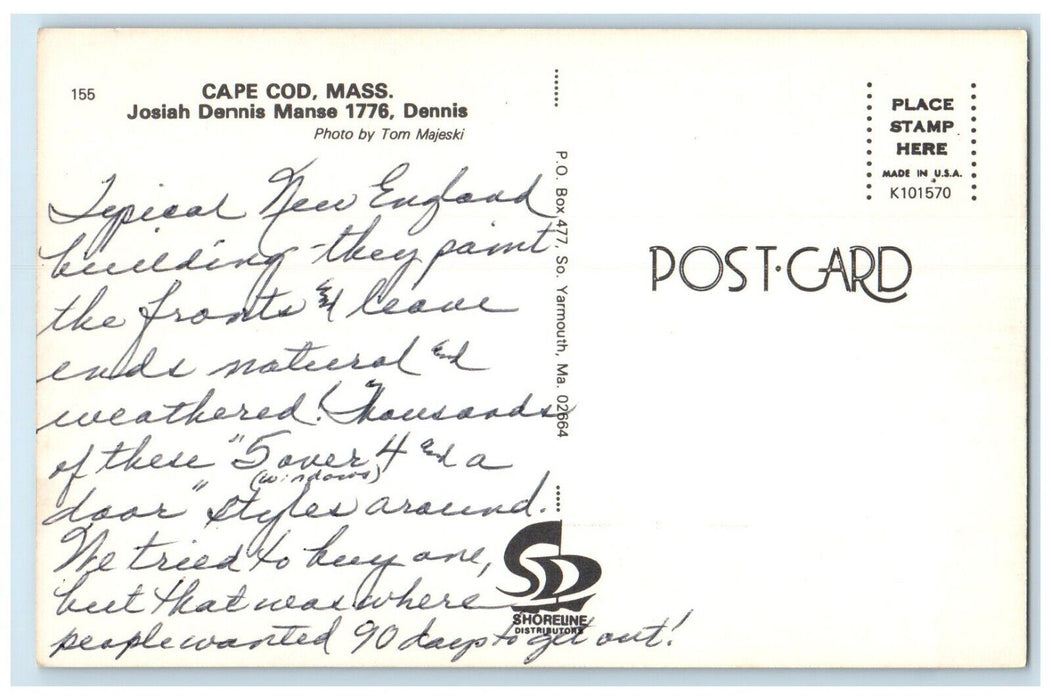 155
CAPE COD, MASS.
Josiah Dennis Manse 1776, Dennis
Photo by Tom Majeski
Typical New England
building - they paint
the fronts and leave
ends natural and
weathered! Thousands
of these "5 over 4 and a
(windows)
door" styles around.
We tried to buy one,
but that was where
people wanted 90 days to get out!
P.O. Box 477, So. Yarmouth, Ma. 02664
SD
SHORELINE
DISTRIBUTORS
PLACE
STAMP
HERE
MADE IN U.S.A.
K101570
POST·CARD